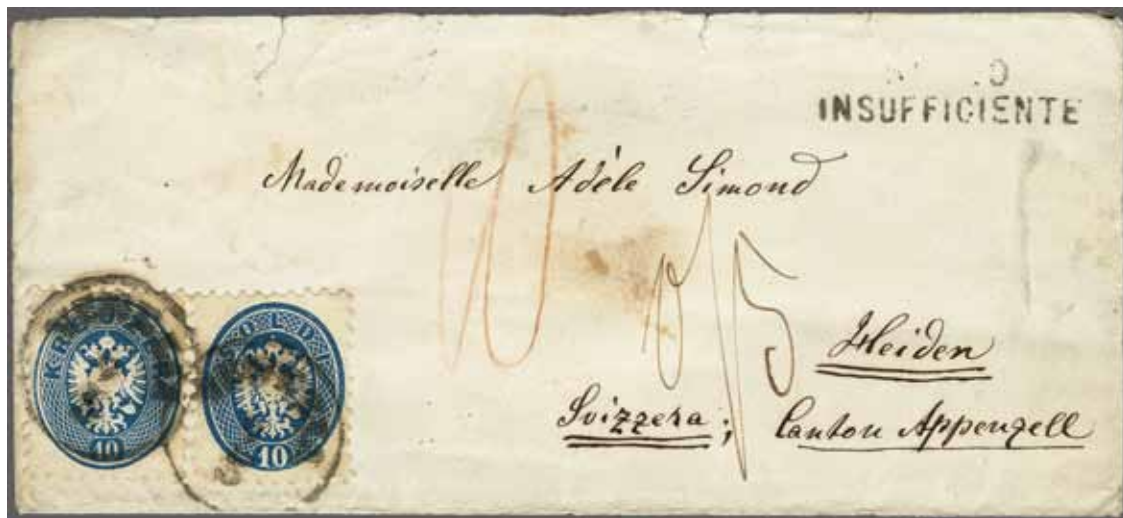 INSUFFICIENTE
Mademoiselle Adèle Simond
10
Heiden
Svizzera; Canton Appenzell
KREUZER
10
SOLDI
10